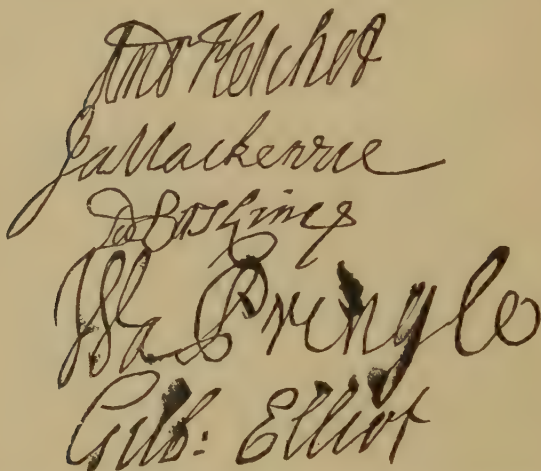 And Fletcher
Ja Mackenzie
Da Erskine
Wa Pringle
Gilb: Elliot